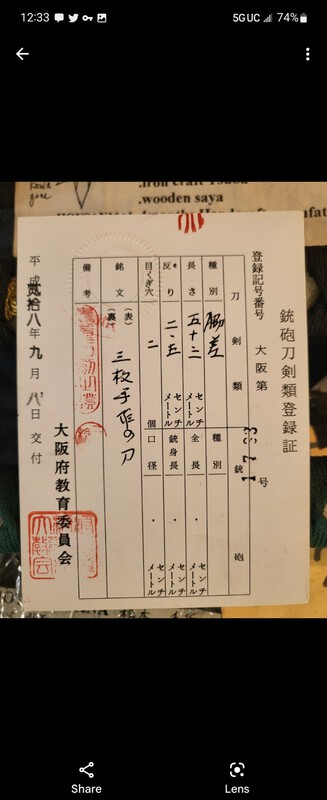 12:33
5G UC
74%
.wooden saya
銃砲刀剣類登録証
登録記号番号 大阪第 1783 号
刀剣類
銃砲
種別 脇差
種別
長さ 五十三 センチメートル
全長 ・ センチメートル
反り 二・五 センチメートル
銃身長 ・ センチメートル
目くぎ穴 二 個
口径 ・ センチメートル
銘文 (表) (裏)
三枚手張の刀
備考
平成弐拾八年九月八日交付
大阪府教育委員会
Share
Lens